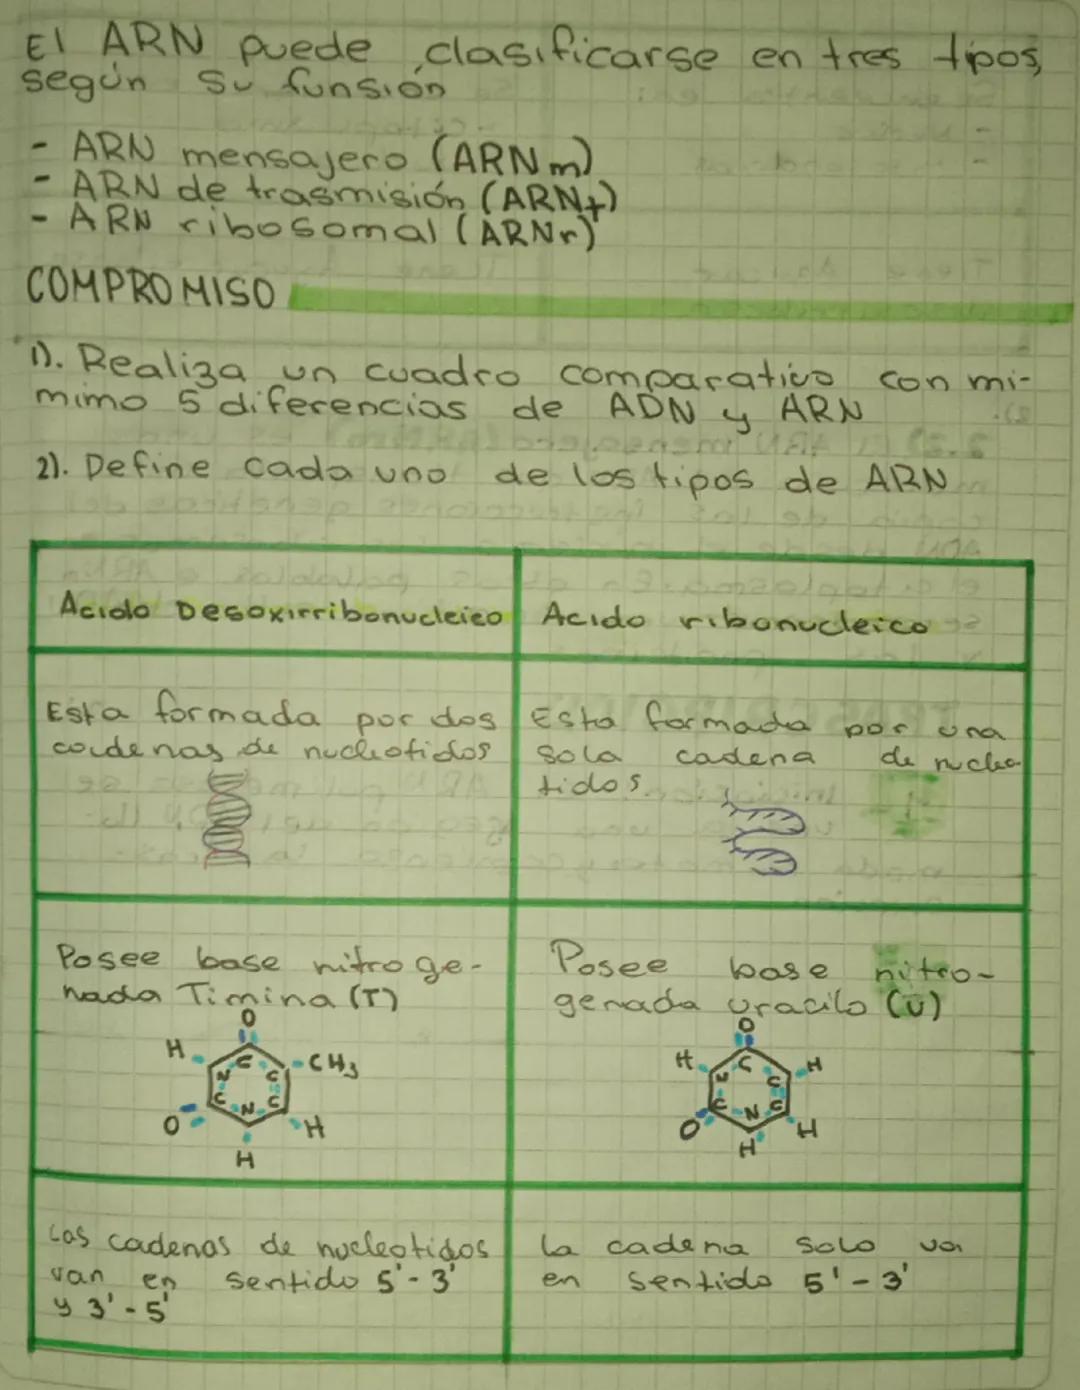 El ARN puede clasificarse en tres tipos,
según su funsión
- ARN mensajero (ARNm)
- ARN de trasmisión (ARNt)
- ARN ribosomal (ARNr)
COMPROMISO
1). Realiza un cuadro comparativo con mi-
mimo 5 diferencias de ADN y ARN
2). Define cada uno de los tipos de ARN
Acido Desoxirribonucleico
Acido ribonucleico
Esta formada por dos
cadenas de nucleotidos
Esta formada por una
sola cadena de nucleo
tidos.
Posee base nitroge-
nada Timina (T)
O
H
C
N
C
CH3
C
N
C
O
H
H
Posee base nitro-
genada uracilo (U)
O
H
C
H
N
C
C
N
C
O
H
H
Las cadenas de nucleotidos
van en sentido 5'-3'
y 3'-5'
La cadena solo va
en sentido 5'-3'